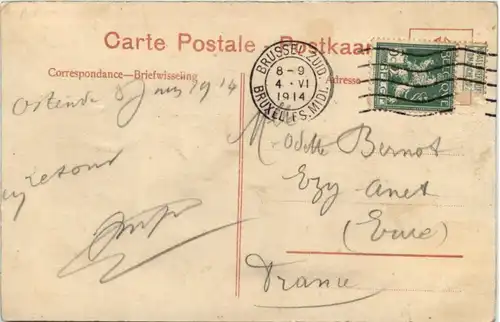 Carte Postale - Postkaart
Correspondance—Briefwisseling
Adresse
BRUSSEL-ZUID.
8-9
4·VI
1914
BRUXELLES.MIDI.
Ostende 1914
Odette Bernot
Ezy Anet
(Eure)
France